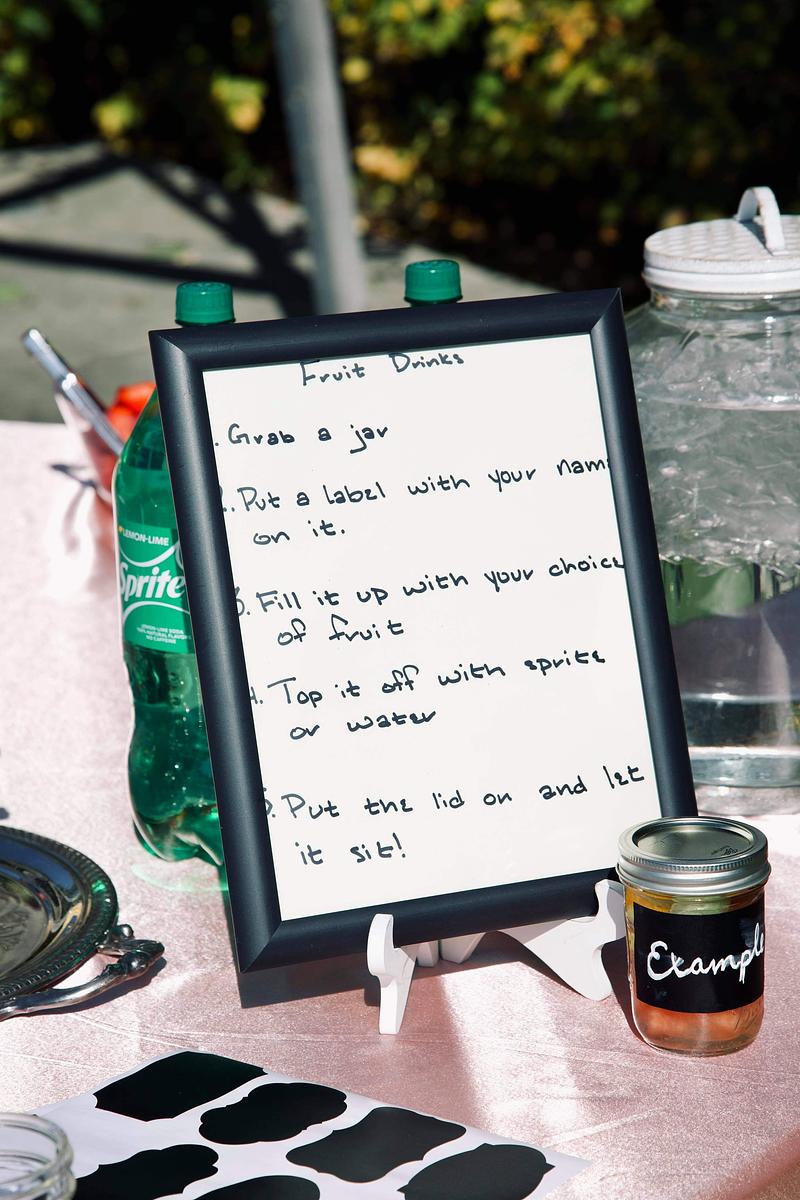 Fruit Drinks
. Grab a jar
. Put a label with your nam
on it.
3. Fill it up with your choice
of fruit
4. Top it off with sprite
or water
5. Put the lid on and let
it sit!
LEMON-LIME
Sprite
LEMON-LIME SODA
100% NATURAL FLAVORS
NO CAFFEINE
Example